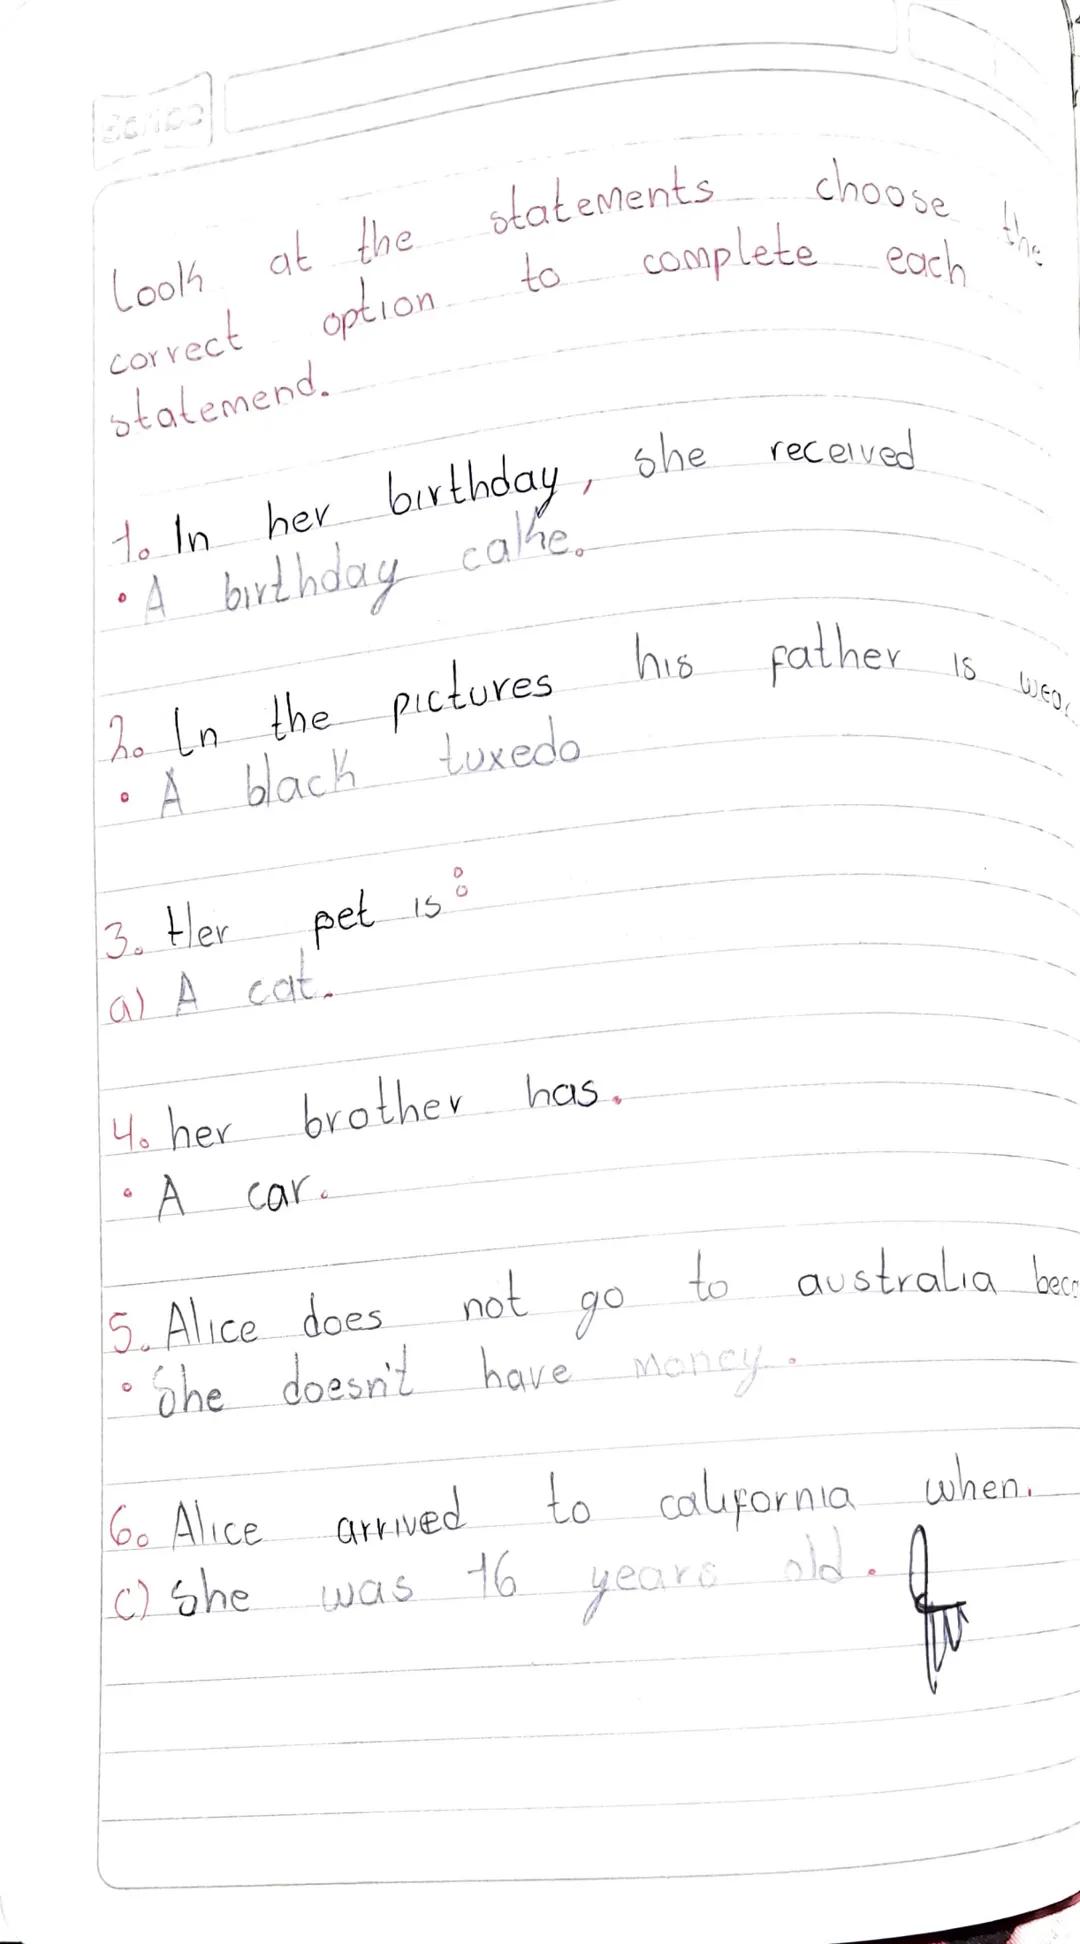 Scribe
Look at the statements choose the
correct option to complete each
statemend.
1. In her birthday, she received
• A birthday cake.
2. In the pictures his father is
• A black tuxedo
3. Her pet is:
a) A cat.
4. her brother has.
• A car.
5. Alice does not go to australia
• She doesn't have money.
6. Alice arrived to california when.
c) She was 16 years old.